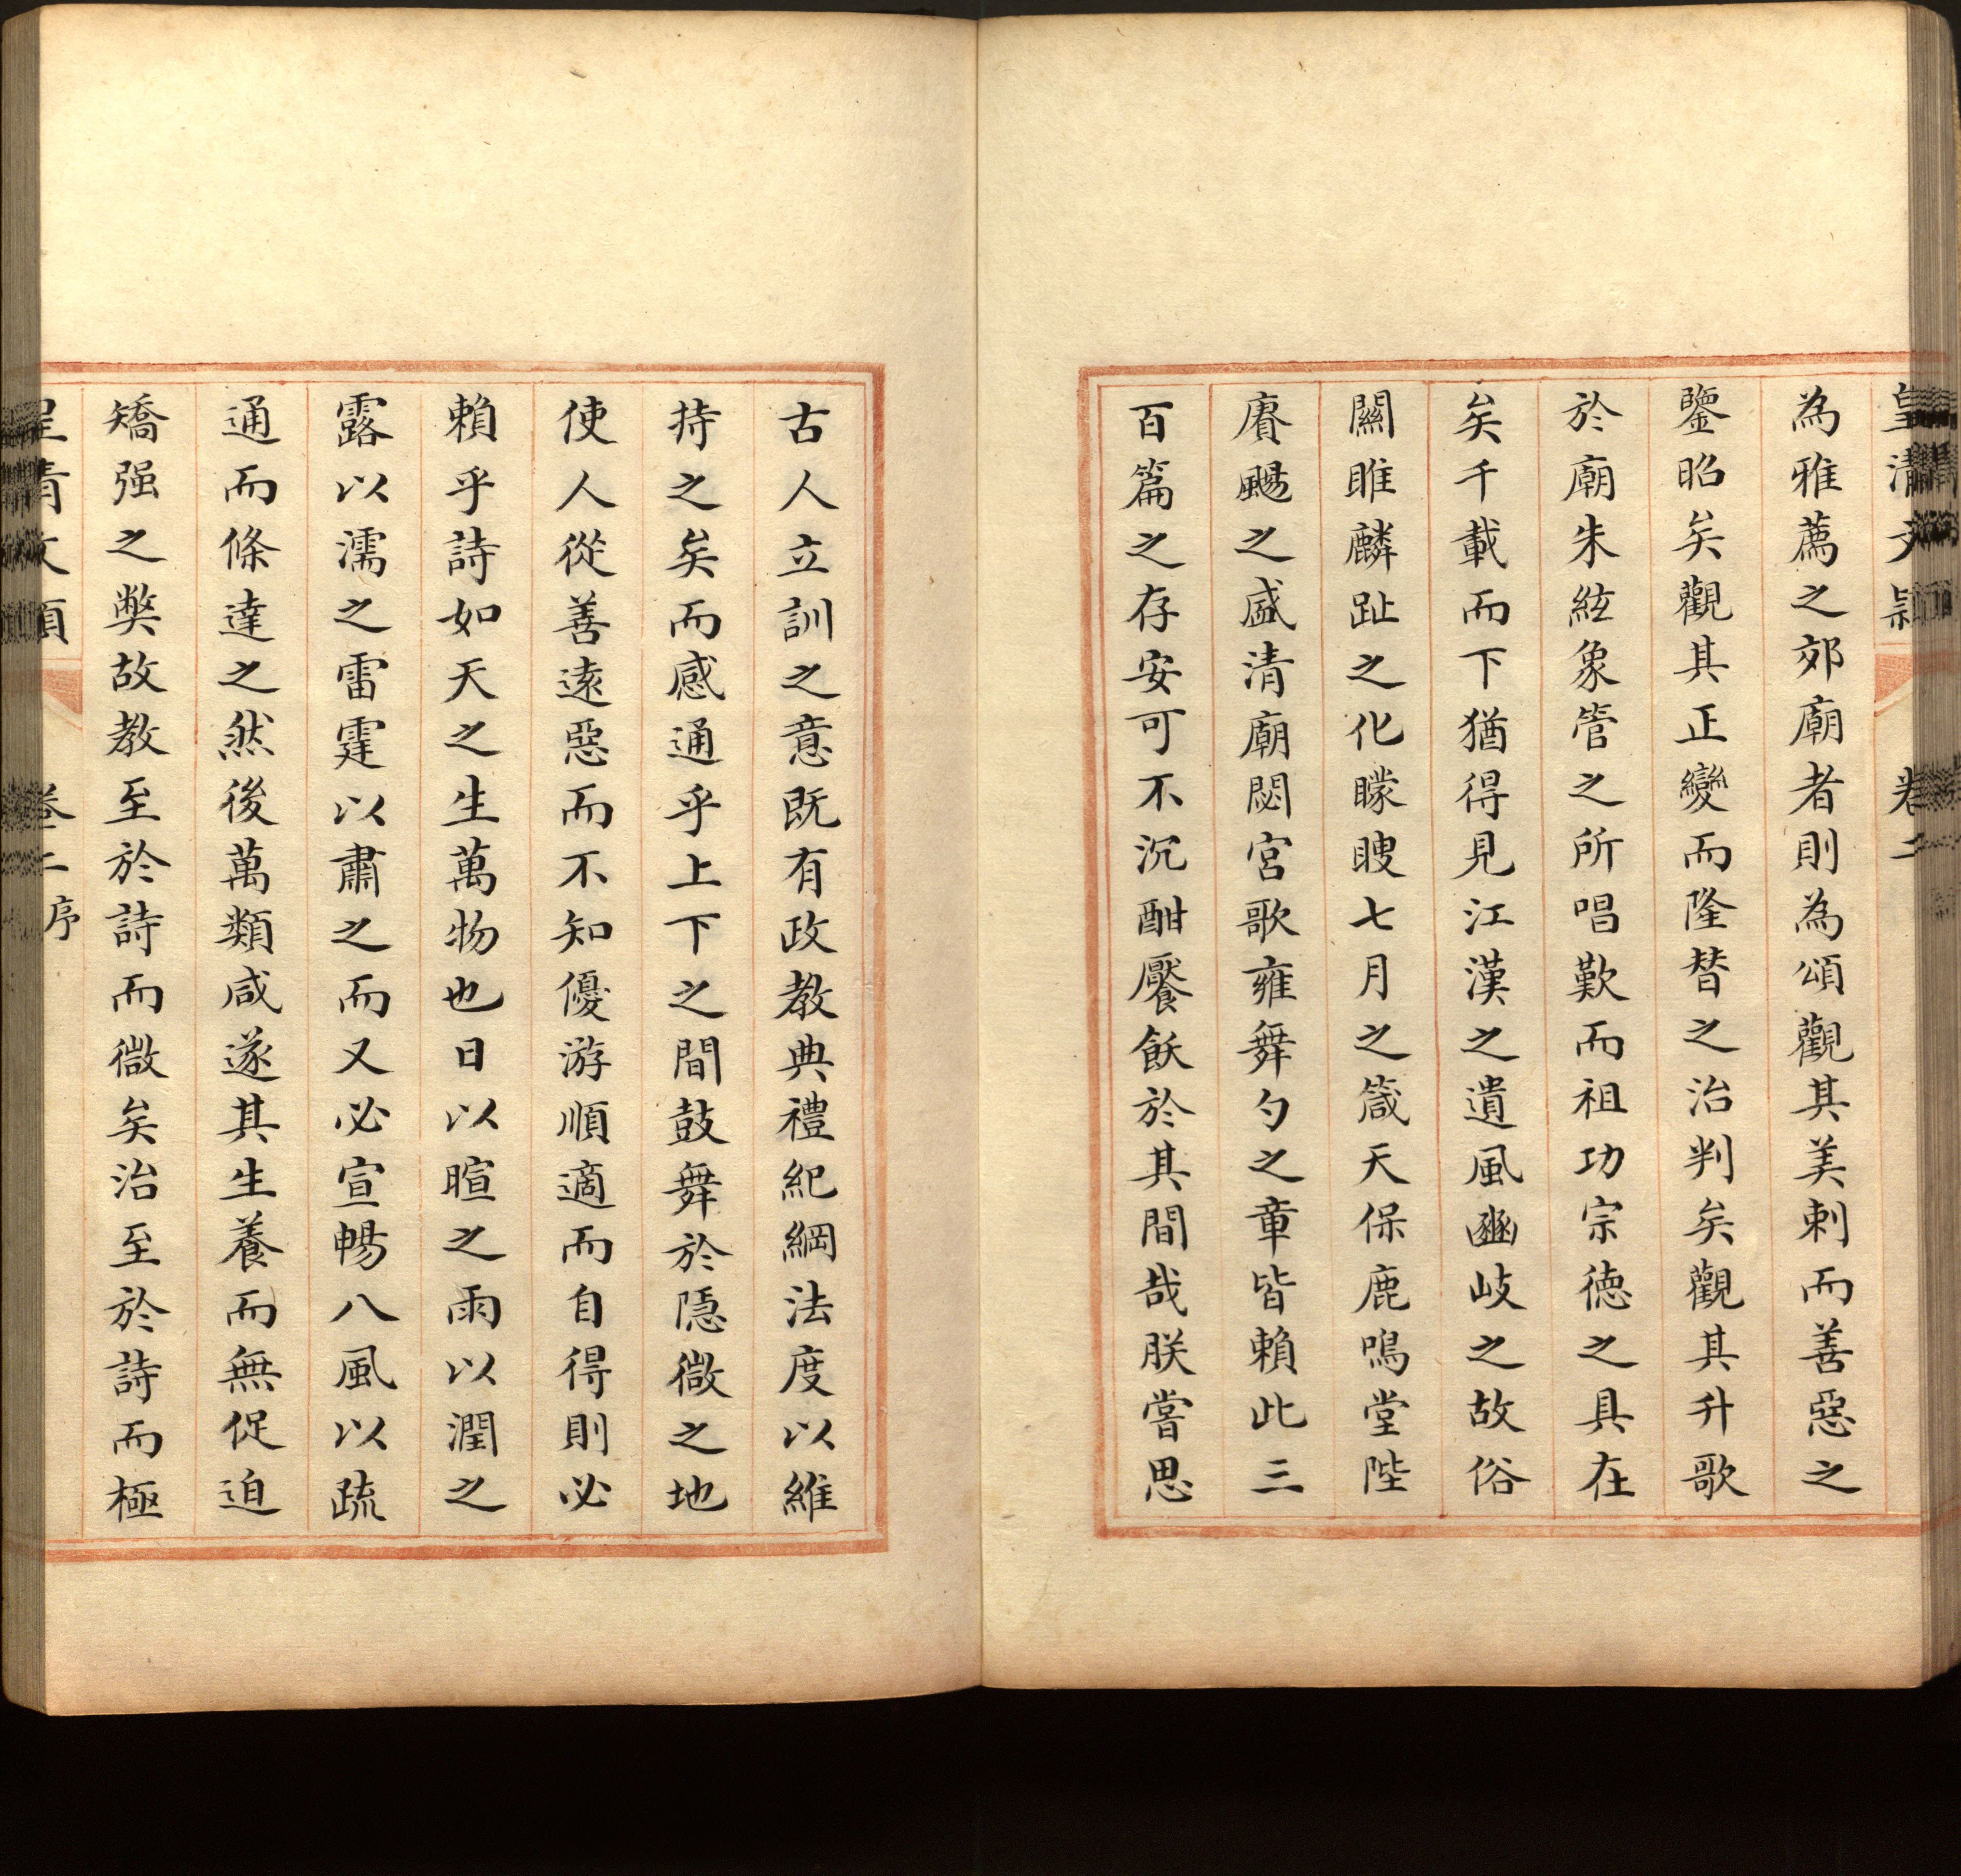 皇清文頴 卷二
為雅薦之郊廟者則為頌觀其美刺而善惡之
鑒昭矣觀其正變而隆替之治判矣觀其升歌
於廟朱絃象管之所唱歎而祖功宗德之具在
矣千載而下猶得見江漢之遺風豳岐之故俗
關雎麟趾之化矇瞍七月之箴天保鹿鳴堂陛
賡颺之盛清廟閟宮歌雍舞勺之章皆賴此三
百篇之存安可不沉酣饜飫於其間哉朕嘗思
古人立訓之意既有政教典禮紀綱法度以維
持之矣而感通乎上下之間鼓舞於隱微之地
使人從善遠惡而不知優游順適而自得則必
賴乎詩如天之生萬物也日以暄之雨以潤之
露以濡之雷霆以肅之而又必宣暢八風以疏
通而條達之然後萬類咸遂其生養而無促迫
矯强之獘故教至於詩而微矣治至於詩而極
皇清文頴 卷二序